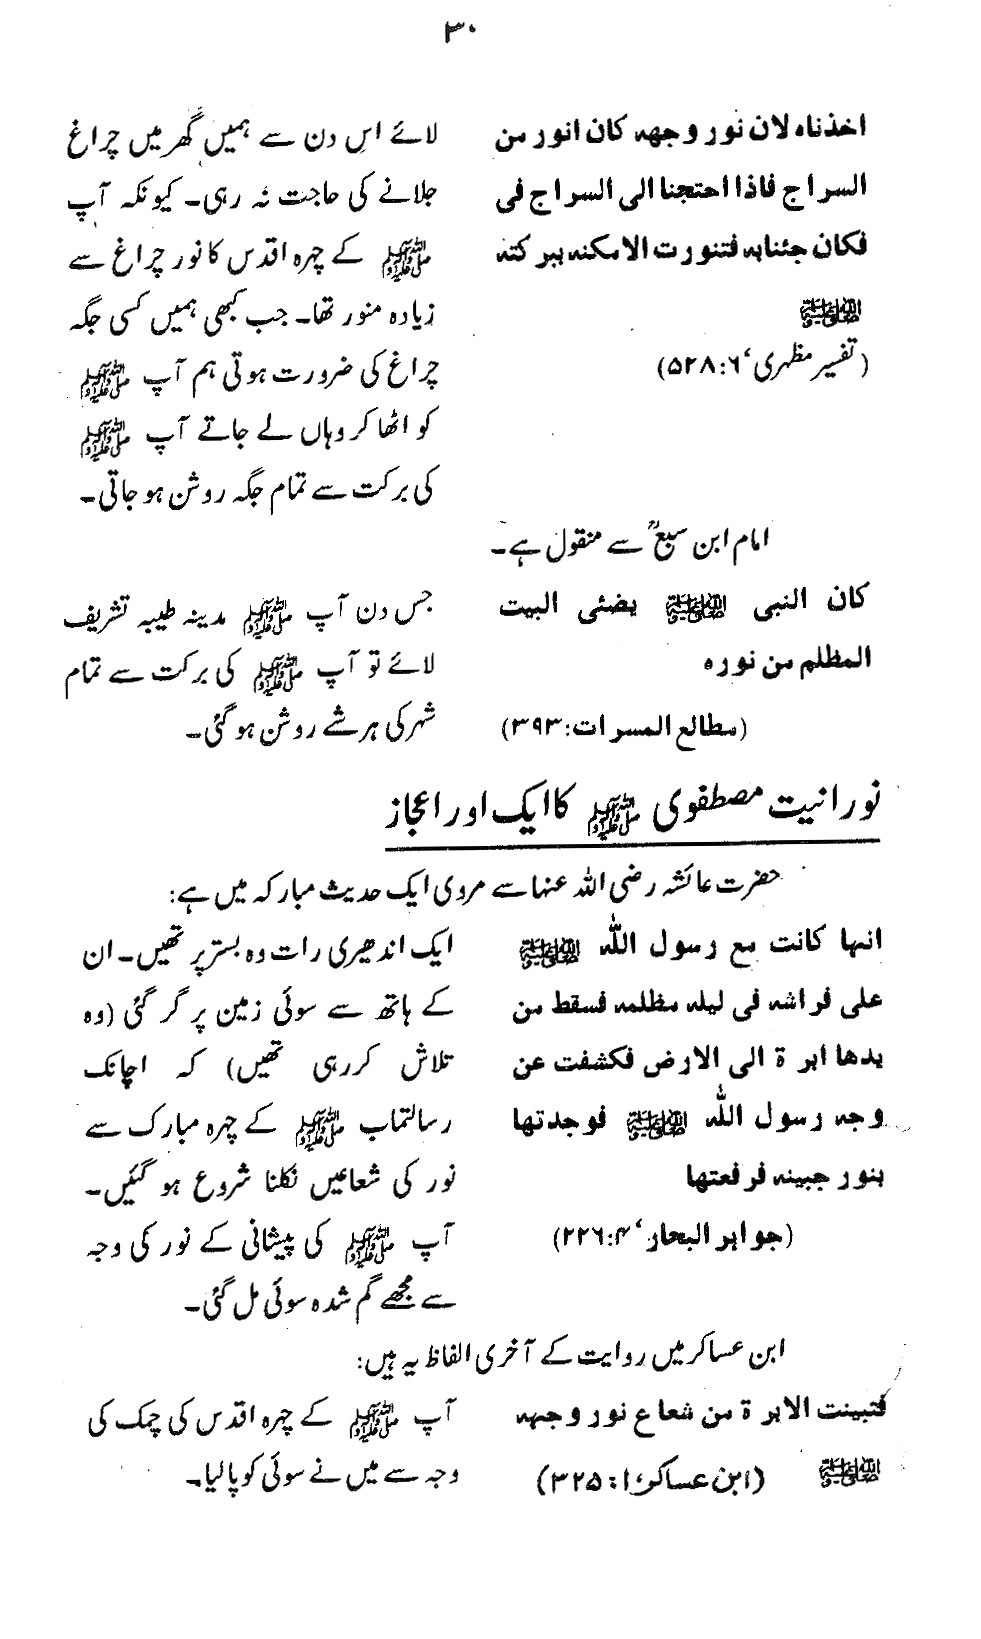 ۳۰
اخذناہ لان نور وجهه کان انور من
السراج فاذا احتجنا الی السراج فی
فکان جئنابه فتنورت الامکنه ببرکته
ﷺ
(تفسیر مظہری‘ ۶:۵۲۸)
لائے اس دن سے ہمیں گھر میں چراغ
جلانے کی حاجت نہ رہی۔ کیونکہ آپ
ﷺ کے چہرہ اقدس کا نور چراغ سے
زیادہ منور تھا۔ جب کبھی ہمیں کسی جگہ
چراغ کی ضرورت ہوتی ہم آپ ﷺ
کو اٹھا کر وہاں لے جاتے آپ ﷺ
کی برکت سے تمام جگہ روشن ہو جاتی۔
امام ابن سبعؒ سے منقول ہے۔
کان النبی ﷺ یضئی البیت
المظلم من نورہ
(مطالع المسرات: ۳۹۳)
جس دن آپ ﷺ مدینہ طیبہ تشریف
لائے تو آپ ﷺ کی برکت سے تمام
شہر کی ہر شے روشن ہو گئی۔
نورانیت مصطفوی ﷺ کا ایک اور اعجاز
حضرت عائشہ رضی اللہ عنہا سے مروی ایک حدیث مبارکہ میں ہے:
انها کانت مع رسول اللہ ﷺ
علی فراشه فی لیله مظلمه فسقط من
یدها ابرۃ الی الارض فکشفت عن
وجه رسول اللہ ﷺ فوجدتها
بنور جبینه فرفعتها
(جواہر البحار‘ ۴:۲۲۶)
ایک اندھیری رات وہ بستر پر تھیں۔ ان
کے ہاتھ سے سوئی زمین پر گر گئی (وہ
تلاش کر رہی تھیں) کہ اچانک
رسالتماب ﷺ کے چہرہ مبارک سے
نور کی شعاعیں نکلنا شروع ہو گئیں۔
آپ ﷺ کی پیشانی کے نور کی وجہ
سے مجھے گم شدہ سوئی مل گئی۔
ابن عساکر میں روایت کے آخری الفاظ یہ ہیں:
فتبینت الابرۃ من شعاع نور وجهه
ﷺ (ابن عساکر‘ ۱:۳۲۵)
آپ ﷺ کے چہرہ اقدس کی چمک کی
وجہ سے میں نے سوئی کو پا لیا۔